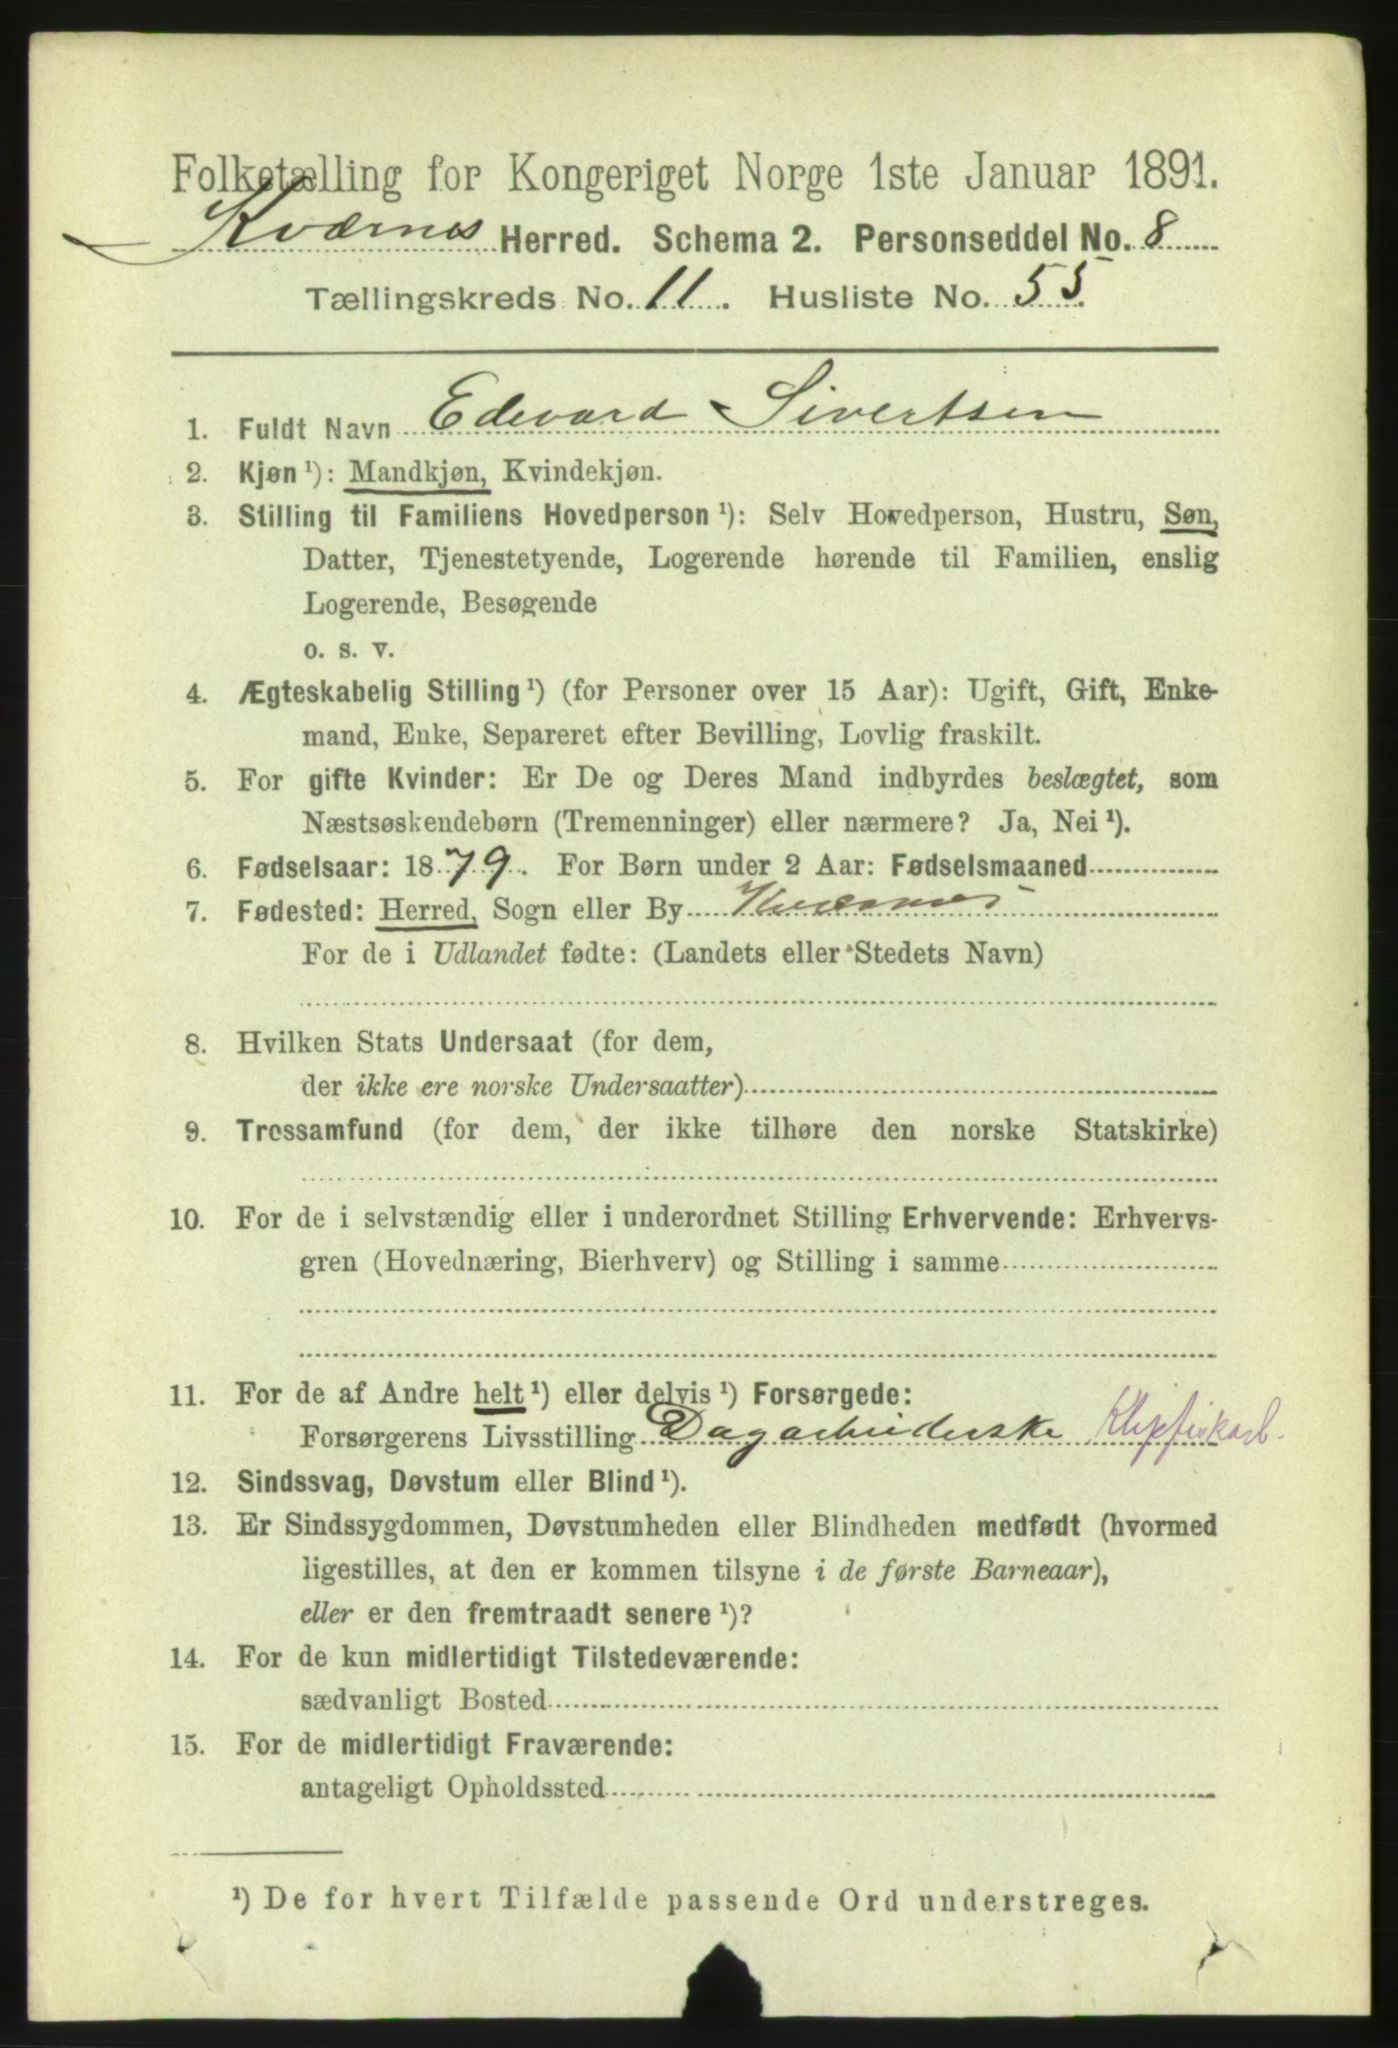 Folketælling for Kongeriget Norge 1ste Januar 1891.
Kværnes Herred. Schema 2. Personseddel No. 8
Tællingskreds No. 11. Husliste No. 55.
1. Fuldt Navn Edevard Sivertsen
2. Kjøn ¹): Mandkjøn, Kvindekjøn.
3. Stilling til Familiens Hovedperson ¹): Selv Hovedperson, Hustru, Søn,
Datter, Tjenestetyende, Logerende hørende til Familien, enslig
Logerende, Besøgende
o. s. v.
4. Ægteskabelig Stilling ¹) (for Personer over 15 Aar): Ugift, Gift, Enke-
mand, Enke, Separeret efter Bevilling, Lovlig fraskilt.
5. For gifte Kvinder: Er De og Deres Mand indbyrdes beslægtet, som
Næstsøskendebørn (Tremenninger) eller nærmere? Ja, Nei ¹).
6. Fødselsaar: 1879. For Børn under 2 Aar: Fødselsmaaned
7. Fødested: Herred, Sogn eller By Kværnes
For de i Udlandet fødte: (Landets eller Stedets Navn)
8. Hvilken Stats Undersaat (for dem,
der ikke ere norske Undersaatter)
9. Trossamfund (for dem, der ikke tilhøre den norske Statskirke)
10. For de i selvstændig eller i underordnet Stilling Erhvervende: Erhvervs-
gren (Hovednæring, Bierhverv) og Stilling i samme
11. For de af Andre helt ¹) eller delvis ¹) Forsørgede:
Forsørgerens Livsstilling Dagarbeiderske Klipfiskarb.
12. Sindssvag, Døvstum eller Blind ¹).
13. Er Sindssygdommen, Døvstumheden eller Blindheden medfødt (hvormed
ligestilles, at den er kommen tilsyne i de første Barneaar),
eller er den fremtraadt senere ¹)?
14. For de kun midlertidigt Tilstedeværende:
sædvanligt Bosted
15. For de midlertidigt Fraværende:
antageligt Opholdssted
¹) De for hvert Tilfælde passende Ord understreges.